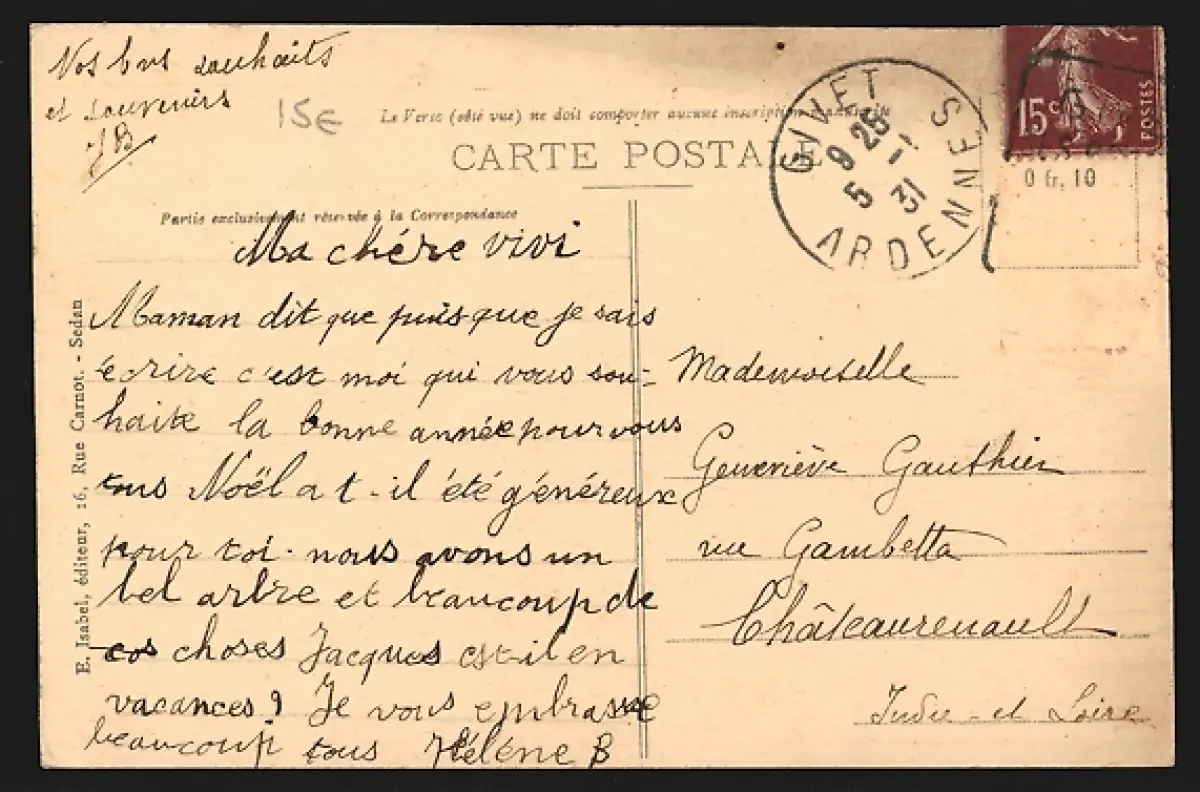 Nos bns souhaits
et souvenirs
JB
15€
Le Verso (côté vue) ne doit comporter aucune inscription
CARTE POSTALE
GIVET
ARDENNES
9 25
5 - 1
31
15c
POSTES
0 fr, 10
Partie exclusivement réservée à la Correspondance
Ma chére vivi
Maman dit que puis que je sais
écrire c'est moi qui vous sou-
haite la bonne année pour vous
tous Noël a t-il été généreux
pour toi. nous avons un
bel arbre et beaucoup de
cos choses Jacques est-il en
vacances? Je vous embrasse
beaucoup tous Hélène B
Mademoiselle
Geneviève Gauthier
rue Gambetta
Châteaurenault
Indre-et Loire
E. Isabel, éditeur, 16, Rue Carnot. - Sedan